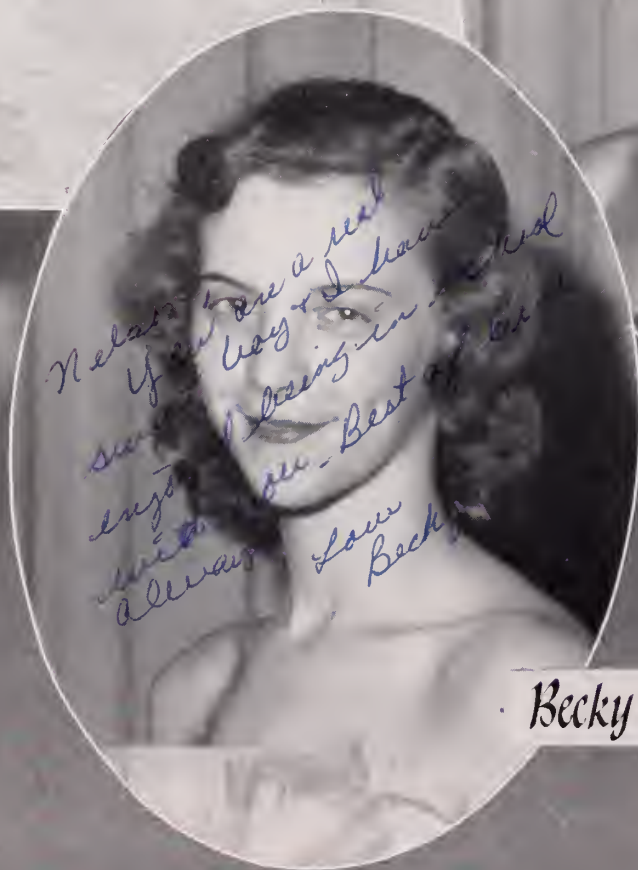 Nelson
You are a real
sweet boy & I have
enjoyed being in school
with you. Best of
always Love
Becky
Becky